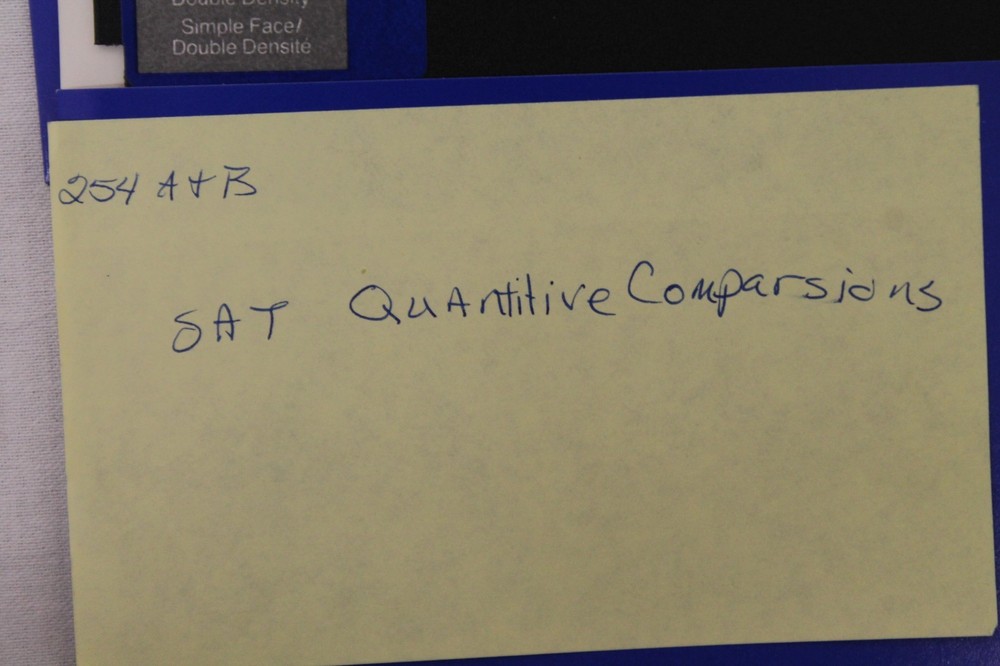 Double Density
Simple Face/
Double Densité
254 A+B
SAT QuAntitive Comparsions